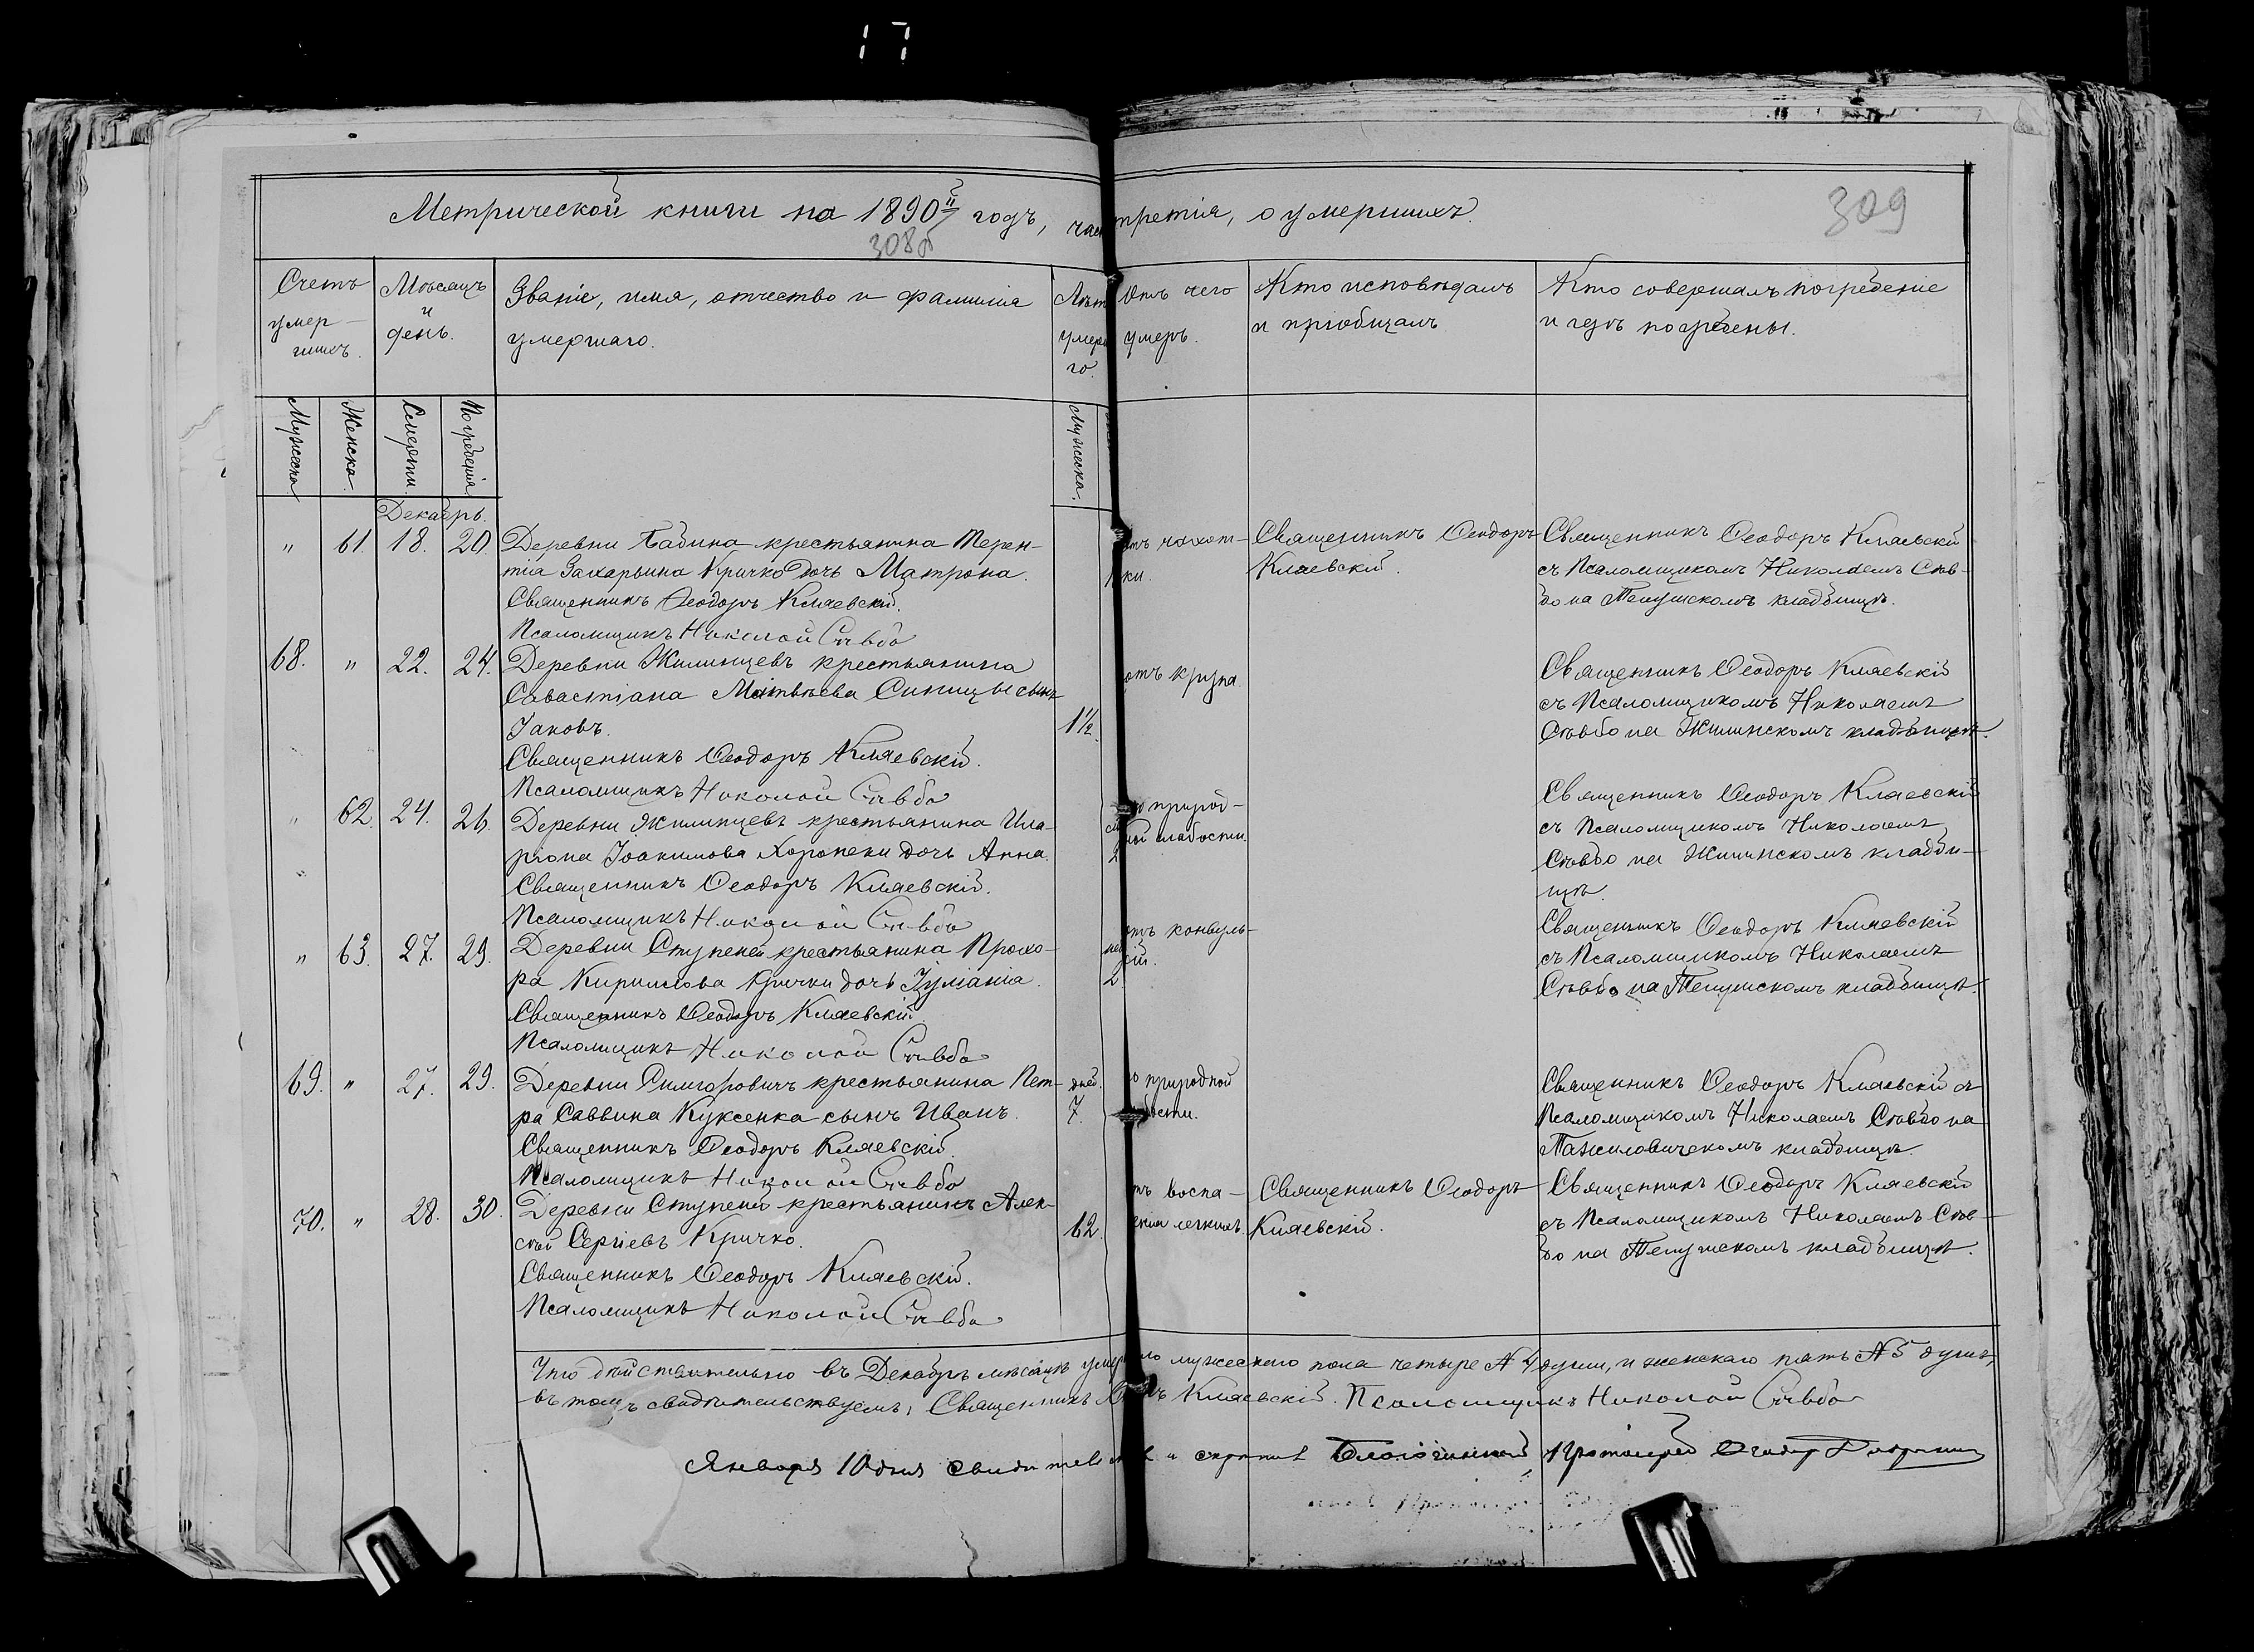 Метрической книги на 1890й годъ, час третія, о умершихъ.
308об
309
Счетъ умер-шихъ.
Мѣсяцъ и день.
Званіе, имя, отчество и фамилія умершаго.
Лѣт умерш го.
Отъ чего умеръ.
Кто исповѣдалъ и пріобщалъ
Кто совершалъ погребеніе и гдѣ погребены.
Мужеска
Женска.
Смерти.
Погребенія
Мужеска.
Декабрь.
" 61. 18. 20.
Деревни Бабина крестьянина Терен-
тія Захарьина Кричко дочь Матрона.
Священникъ Ѳеодоръ Кляевскій.
Псаломщикъ Николай Сѣвбо
отъ чахот-
ки.
Священникъ Ѳеодоръ
Кляевскій.
Священникъ Ѳеодоръ Кляевскій
съ Псаломщикомъ Николаемъ Сѣв-
бо на кладбищѣ.
68. " 22. 24.
Деревни Жилинцевъ крестьянина
Савастіана Матвѣева Синицы сынъ
Іаковъ.
1½.
Священникъ Ѳеодоръ Кляевскій.
Псаломщикъ Николай Сѣвбо
отъ крупа.
Священникъ Ѳеодоръ Кляевскій
съ Псаломщикомъ Николаемъ
Сѣвбо на Жилинскомъ кладбищѣ.
" 62. 24. 26.
Деревни Жилинцевъ крестьянина Ила-
ріона Іоакимова Хоронеки дочь Анна.
Священникъ Ѳеодоръ Кляевскій.
Псаломщикъ Николай Сѣвбо
2
природ-
ной слабости.
Священникъ Ѳеодоръ Кляевскій
съ Псаломщикомъ Николаемъ
Сѣвбо на Жилинскомъ кладби-
щѣ.
" 63. 27. 29.
Деревни Ступеней крестьянина Прохо-
ра Кирилова Кричка дочь Іуліанія.
Священникъ Ѳеодоръ Кляевскій
Псаломщикъ Николай Сѣвбо
нед
2
отъ конвуль-
сій.
Священникъ Ѳеодоръ Кляевскій
съ Псаломщикомъ Николаемъ
Сѣвбо на кладбищѣ.
69. " 27. 29.
Деревни крестьянина Пет-
ра Саввина Куксенка сынъ Иванъ.
Священникъ Ѳеодоръ Кляевскій.
Псаломщикъ Николай Сѣвбо
дней.
7.
природной
Священникъ Ѳеодоръ Кляевскій съ
Псаломщикомъ Николаемъ Сѣвбо на
кладбищѣ.
70. " 28. 30.
Деревни Ступеней крестьянинъ Алек-
сѣй Сергіевъ Кричко.
62.
Священникъ Ѳеодоръ Кляевскій.
Псаломщикъ Николай Сѣвбо
воспа-
легкихъ.
Священникъ Ѳеодоръ
Кляевскій.
Священникъ Ѳеодоръ Кляевскій
съ Псаломщикомъ Николаемъ Сѣв-
бо на кладбищѣ.
Что дѣйствительно въ Декабрѣ мѣсяцѣ умерло мужескаго пола четыре № 4 души, и женскаго пять № 5 душъ,
въ томъ свидѣтельствуемъ, Священникъ Кляевскій. Псаломщикъ Николай Сѣвбо
Января 10 дня и скрѣпилъ Благочинный Протоіерей